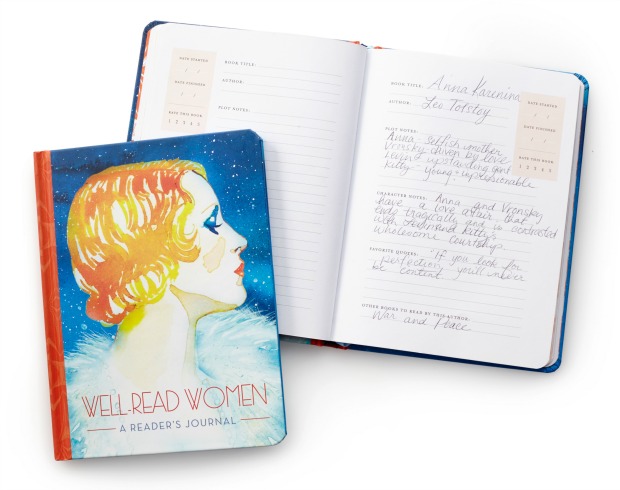 DATE STARTED
/ /
DATE FINISHED
/ /
RATE THIS BOOK
1 2 3 4 5
BOOK TITLE:
AUTHOR:
PLOT NOTES:
BOOK TITLE: Anna Karenina
AUTHOR: Leo Tolstoy
DATE STARTED
/ /
DATE FINISHED
/ /
RATE THIS BOOK
1 2 3 4 5
PLOT NOTES:
Anna selfish mother
Vronsky driven by love
Levin upstanding gent
Kitty young + impressionable
CHARACTER NOTES: Anna and Vronsky
have a love affair that
ends tragically and is contrasted
with Levin and Kitty's
wholesome courtship.
FAVORITE QUOTES: "If you look for
perfection, you'll never
be content"
OTHER BOOKS TO READ BY THIS AUTHOR:
War and Peace
WELL-READ WOMEN
A READER'S JOURNAL